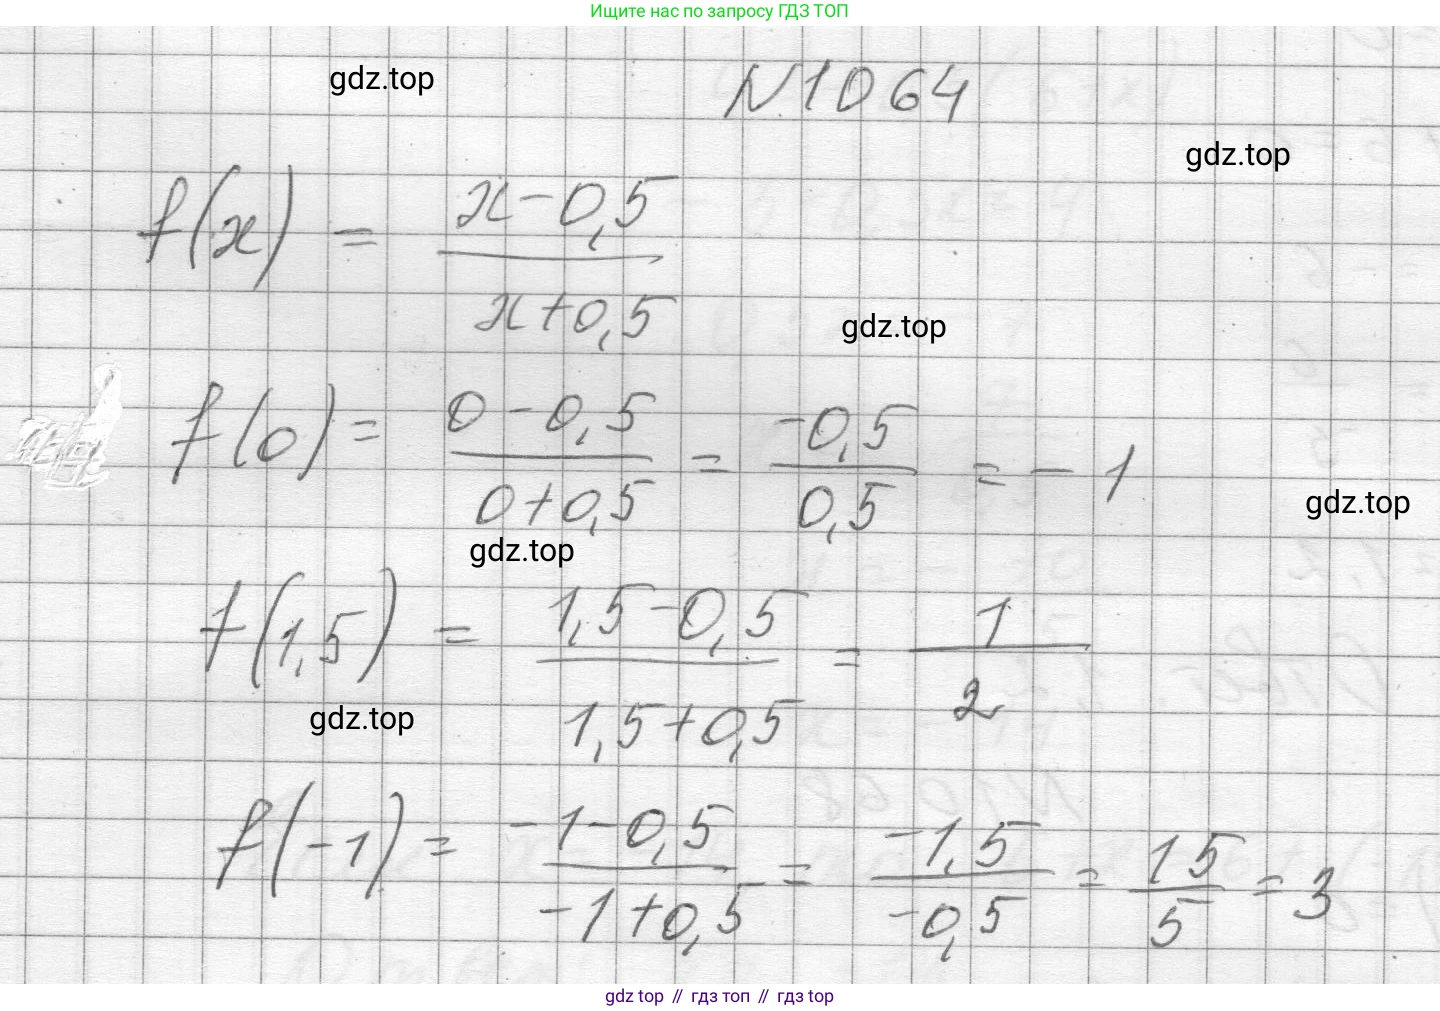 Ищите нас по запросу ГДЗ ТОП
gdz.top
N1064
gdz.top
f(x) = (x-0,5)/(x+0,5)
gdz.top
f(0) = (0-0,5)/(0+0,5) = (-0,5)/(0,5) = -1
gdz.top
gdz.top
f(1,5) = (1,5-0,5)/(1,5+0,5) = 1/2
gdz.top
f(-1) = (-1-0,5)/(-1+0,5) = (-1,5)/(-0,5) = 15/5 = 3
gdz top // гдз топ // гдз top